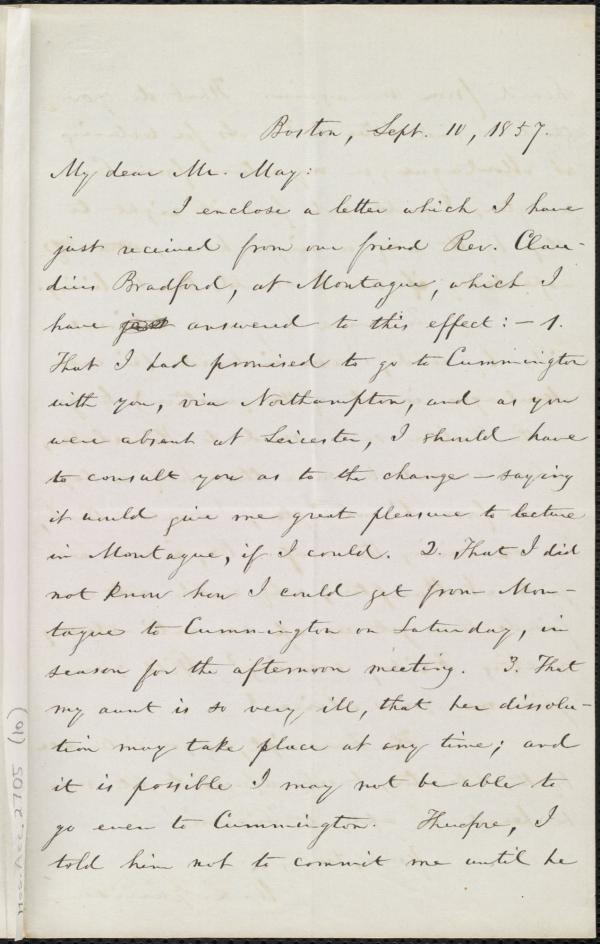 Boston, Sept. 10, 1857.
My dear Mr. May:
I enclose a letter which I have
just received from our friend Rev. Clau-
dius Bradford, at Montague, which I
have just answered to this effect: — 1.
That I had promised to go to Cummington
with you, via Northampton, and as you
were absent at Leicester, I should have
to consult you as to the change — saying
it would give me great pleasure to lecture
in Montague, if I could. 2. That I did
not know how I could get from Mon-
tague to Cummington on Saturday, in
season for the afternoon meeting. 3. That
my aunt is so very ill, that her dissolu-
tion may take place at any time; and
it is possible I may not be able to
go even to Cummington. Therefore, I
told him not to commit me until he
Acc. 2705 (10)